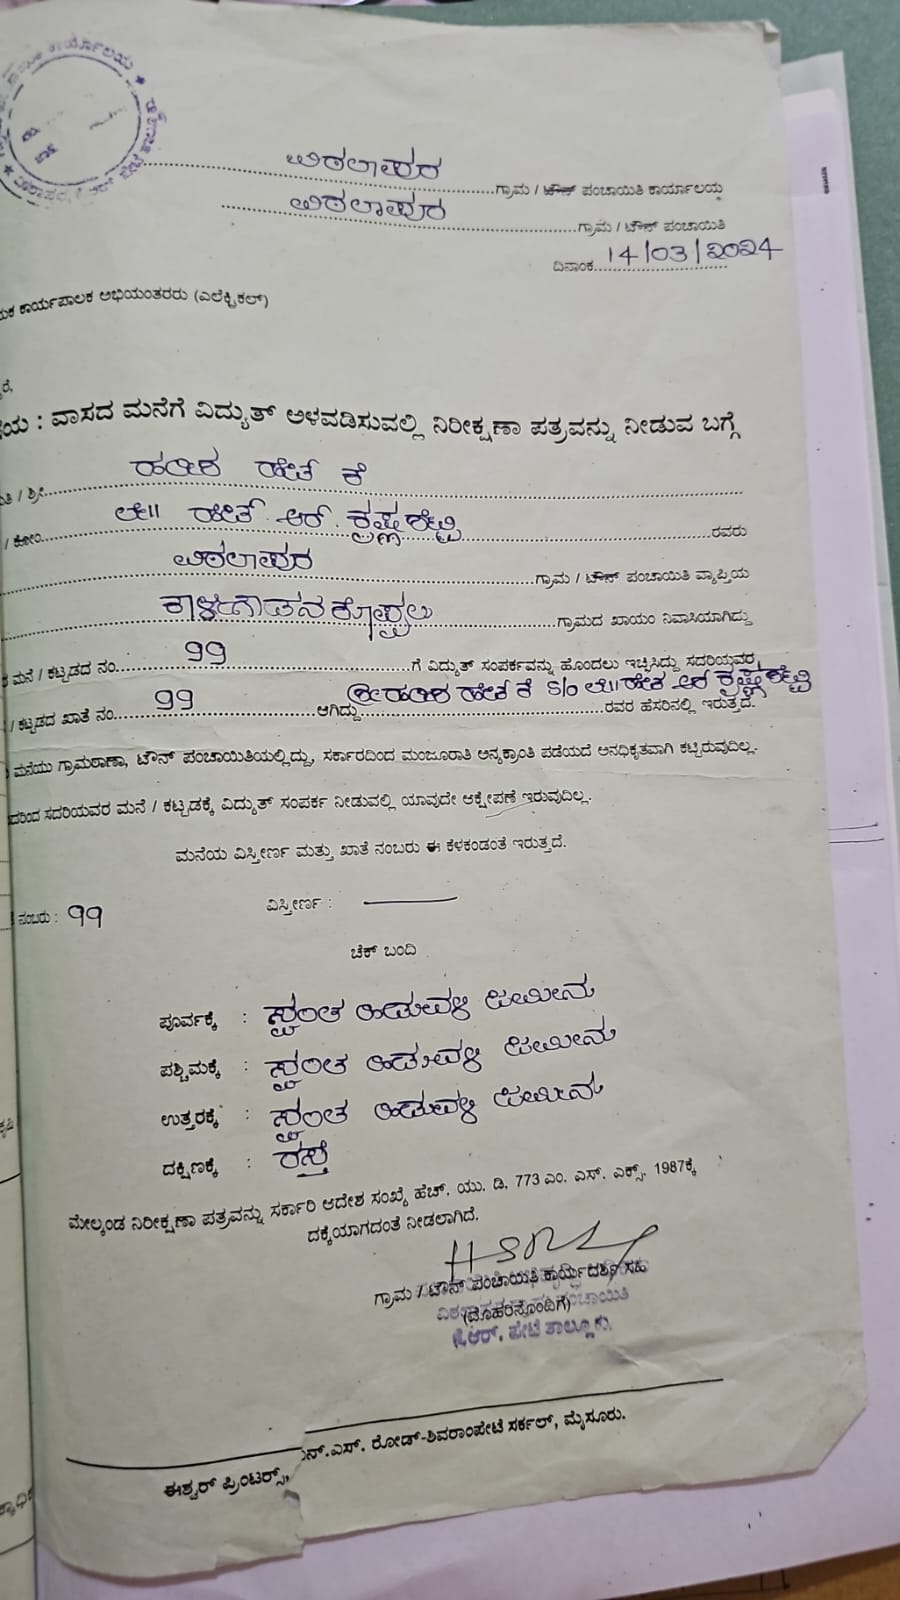 ವಿಠಲಾಪುರ
ಗ್ರಾಮ / ಟೌನ್ ಪಂಚಾಯಿತಿ ಕಾರ್ಯಾಲಯ
ವಿಠಲಾಪುರ
ಗ್ರಾಮ / ಟೌನ್ ಪಂಚಾಯಿತಿ
ದಿನಾಂಕ 14/03/2024
ಕಾರ್ಯಪಾಲಕ ಅಭಿಯಂತರರು (ಎಲೆಕ್ಟ್ರಿಕಲ್)
: ವಾಸದ ಮನೆಗೆ ವಿದ್ಯುತ್ ಅಳವಡಿಸುವಲ್ಲಿ ನಿರೀಕ್ಷಣಾ ಪತ್ರವನ್ನು ನೀಡುವ ಬಗ್ಗೆ
/ ಶ್ರೀ ಹರೀಶ ಹೇತ ಕೆ
/ ಕೋಂ ಲೇ॥ ಹೇತ್ ಆರ್. ಕೃಷ್ಣಶೆಟ್ಟಿ ರವರು
ವಿಠಲಾಪುರ ಗ್ರಾಮ / ಟೌನ್ ಪಂಚಾಯಿತಿ ವ್ಯಾಪ್ತಿಯ
ಕಾಳೇಗೌಡನಕೊಪ್ಪಲು ಗ್ರಾಮದ ಖಾಯಂ ನಿವಾಸಿಯಾಗಿದ್ದು
ಮನೆ / ಕಟ್ಟಡದ ನಂ. 99 ಗೆ ವಿದ್ಯುತ್ ಸಂಪರ್ಕವನ್ನು ಹೊಂದಲು ಇಚ್ಛಿಸಿದ್ದು ಸದರಿಯವರ
/ ಕಟ್ಟಡದ ಖಾತೆ ನಂ. 99 ಆಗಿದ್ದು ಶ್ರೀ ಹರೀಶ ಹೇತ ಕೆ S/o ಲೇ॥ ಹೇತ ಆರ್ ಕೃಷ್ಣಶೆಟ್ಟಿ ರವರ ಹೆಸರಿನಲ್ಲಿ ಇರುತ್ತದೆ.
ಮನೆಯು ಗ್ರಾಮಠಾಣಾ, ಟೌನ್ ಪಂಚಾಯಿತಿಯಲ್ಲಿದ್ದು, ಸರ್ಕಾರದಿಂದ ಮಂಜೂರಾತಿ ಅನ್ಯಕ್ರಾಂತಿ ಪಡೆಯದೆ ಅನಧಿಕೃತವಾಗಿ ಕಟ್ಟಿರುವುದಿಲ್ಲ.
ಸದರಿಯವರ ಮನೆ / ಕಟ್ಟಡಕ್ಕೆ ವಿದ್ಯುತ್ ಸಂಪರ್ಕ ನೀಡುವಲ್ಲಿ ಯಾವುದೇ ಆಕ್ಷೇಪಣೆ ಇರುವುದಿಲ್ಲ.
ಮನೆಯ ವಿಸ್ತೀರ್ಣ ಮತ್ತು ಖಾತೆ ನಂಬರು ಈ ಕೆಳಕಂಡಂತೆ ಇರುತ್ತದೆ.
ನಂಬರು : 99 ವಿಸ್ತೀರ್ಣ :
ಚೆಕ್ ಬಂದಿ
ಪೂರ್ವಕ್ಕೆ : ಸ್ವಂತ ಹಿಡುವಳಿ ಜಮೀನು
ಪಶ್ಚಿಮಕ್ಕೆ : ಸ್ವಂತ ಹಿಡುವಳಿ ಜಮೀನು
ಉತ್ತರಕ್ಕೆ : ಸ್ವಂತ ಹಿಡುವಳಿ ಜಮೀನು
ದಕ್ಷಿಣಕ್ಕೆ : ರಸ್ತೆ
ಮೇಲ್ಕಂಡ ನಿರೀಕ್ಷಣಾ ಪತ್ರವನ್ನು ಸರ್ಕಾರಿ ಆದೇಶ ಸಂಖ್ಯೆ ಹೆಚ್. ಯು. ಡಿ. 773 ಎಂ. ಎಸ್. ಎಕ್ಸ್. 1987ಕ್ಕೆ
ದಕ್ಕೆಯಾಗದಂತೆ ನೀಡಲಾಗಿದೆ.
ಗ್ರಾಮ / ಟೌನ್ ಪಂಚಾಯಿತಿ ಕಾರ್ಯದರ್ಶಿ ಸಹಿ
(ಮೊಹರಿನೊಂದಿಗೆ)
ಕೆ.ಆರ್. ಪೇಟೆ ತಾಲ್ಲೂಕು.
ಈಶ್ವರ್ ಪ್ರಿಂಟರ್ಸ್, ಎನ್.ಎಸ್. ರೋಡ್-ಶಿವರಾಂಪೇಟೆ ಸರ್ಕಲ್, ಮೈಸೂರು.